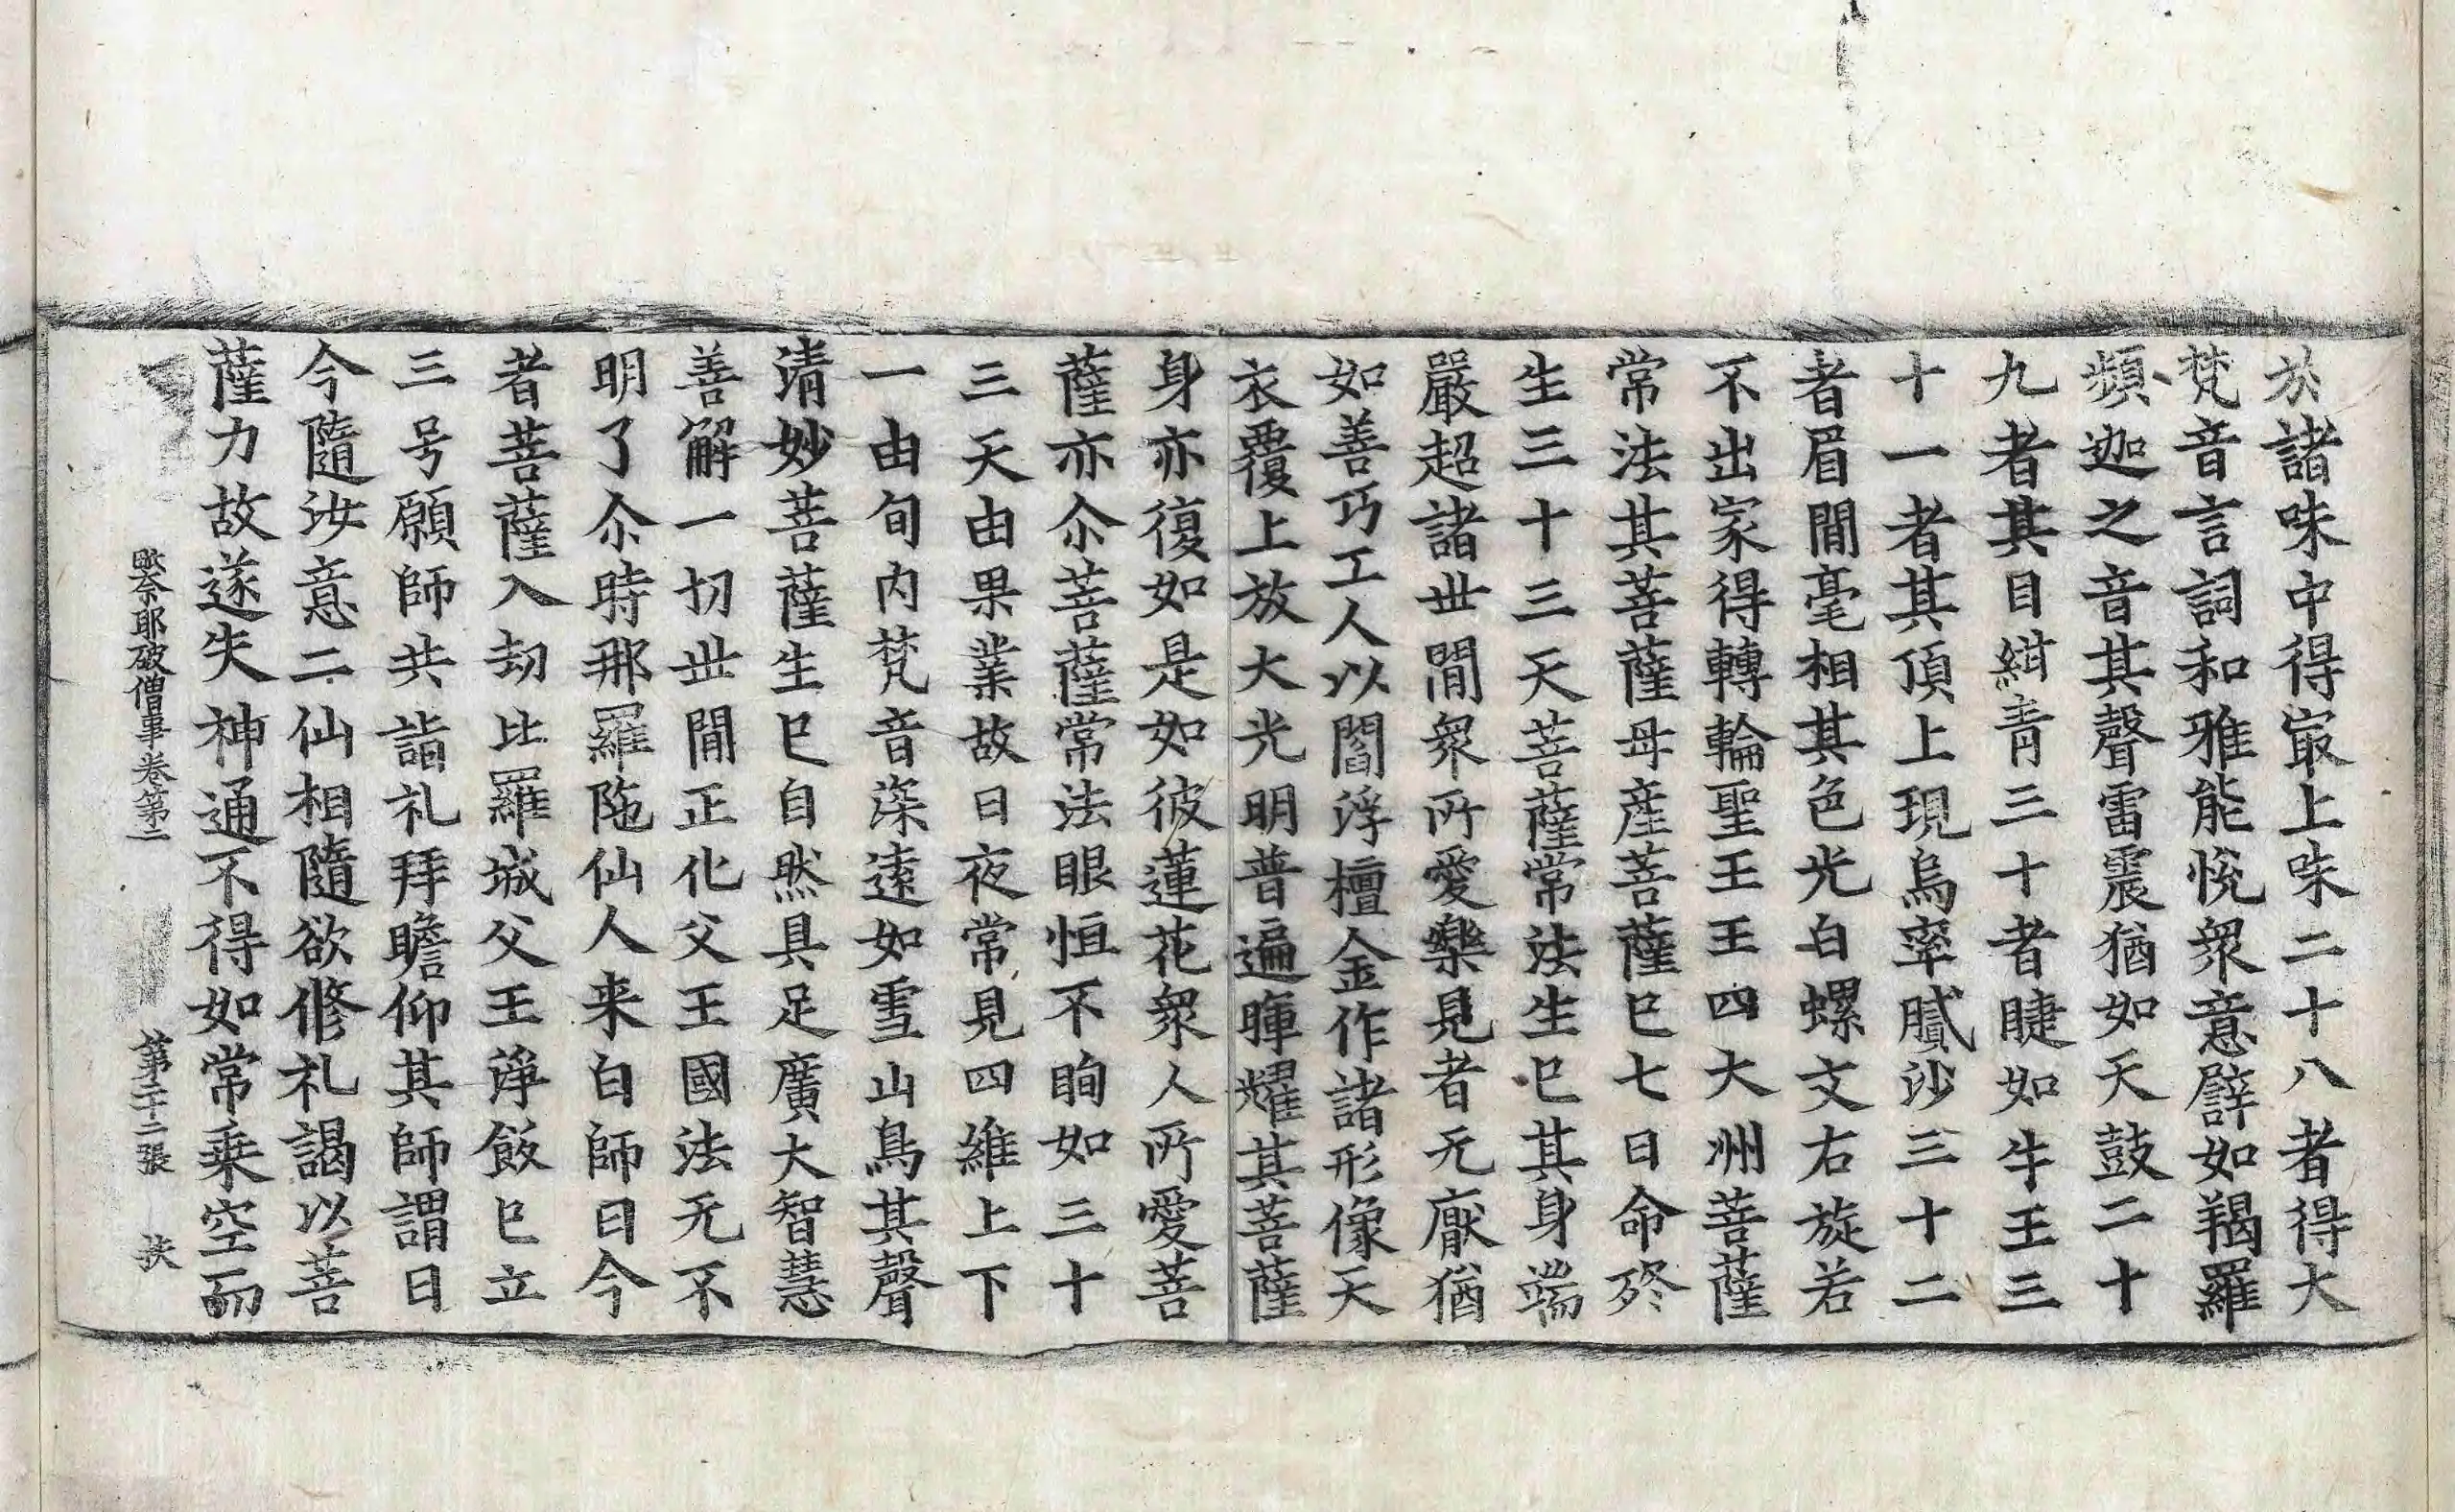 於諸味中得㝡上味二十八者得大
梵音言詞和雅能悅衆意譬如羯羅
頻迦之音其聲雷震猶如天鼓二十
九者其目紺青三十者睫如牛王三
十一者其頂上現烏率膩沙三十二
者眉閒毫相其色光白螺文右旋若
不出家得轉輪聖王王四大洲菩薩
常法其菩薩母産菩薩已七日命終
生三十三天菩薩常法生已其身端
嚴超諸世閒衆所愛樂見者无厭猶
如善巧工人以閻浮檀金作諸形像天
衣覆上放大光明普遍暉耀其菩薩
身亦復如是如彼蓮花衆人所愛菩
薩亦尒菩薩常法眼恒不眴如三十
三天由果業故日夜常見四維上下
一由旬内梵音深遠如雪山鳥其聲
清妙菩薩生已自然具足廣大智慧
善解一切世閒正化父王國法无不
明了尒時那羅陁仙人来白師曰今
者菩薩入劫比羅城父王淨飯已立
三号願師共詣礼拜瞻仰其師謂曰
今隨汝意二仙相隨欲修礼謁以菩
薩力故遂失神通不得如常乗空而
毗奈耶破僧事卷第二 第二十二張 扶